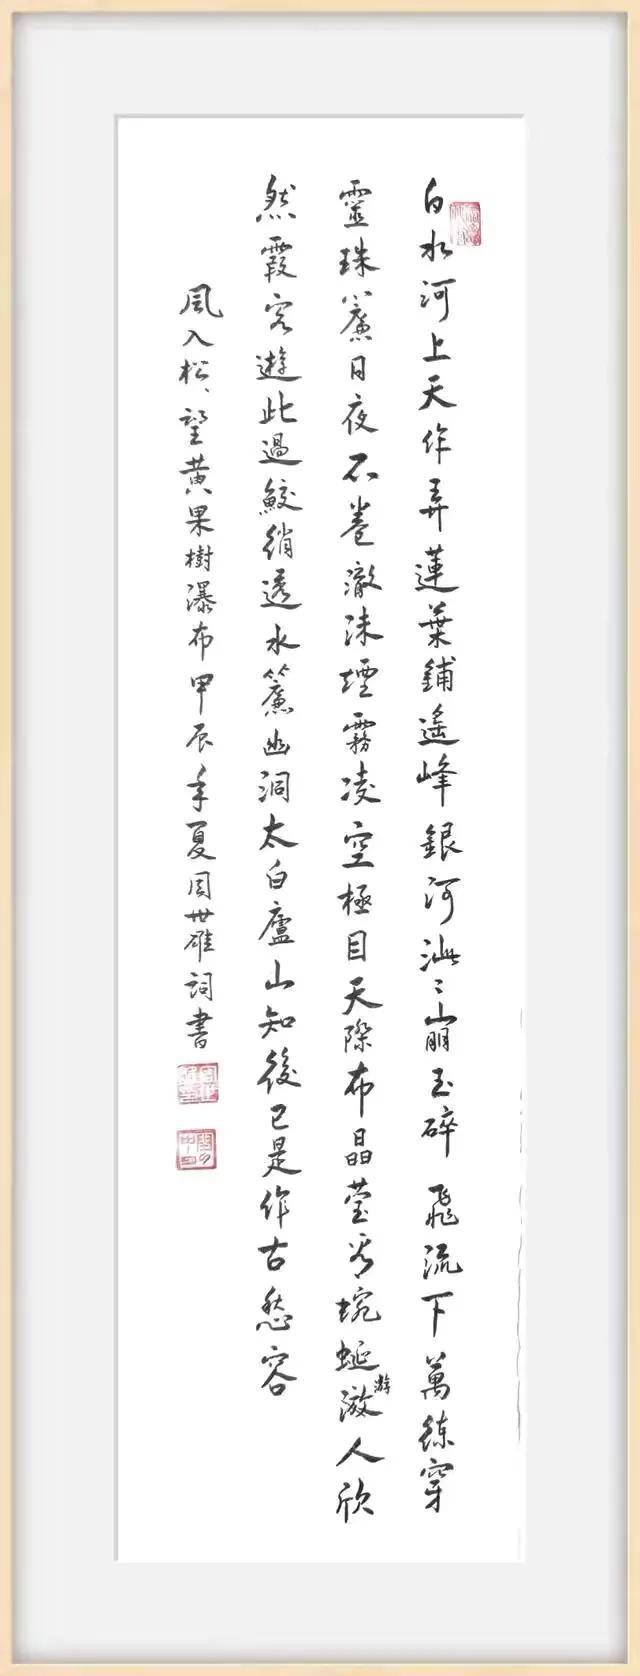 白水河上天作弄蓮葉鋪遙峰銀河〻崩玉碎飛流下萬練穿
靈珠簾日夜不卷澈沫煙霧凌空極目天際布晶瑩若蜿蜒游人欣
然霞客遊此過鮫綃透水簾幽洞太白廬山知後已是作古愁容
風入松、望黃果樹瀑布甲辰年夏周世雄詞書